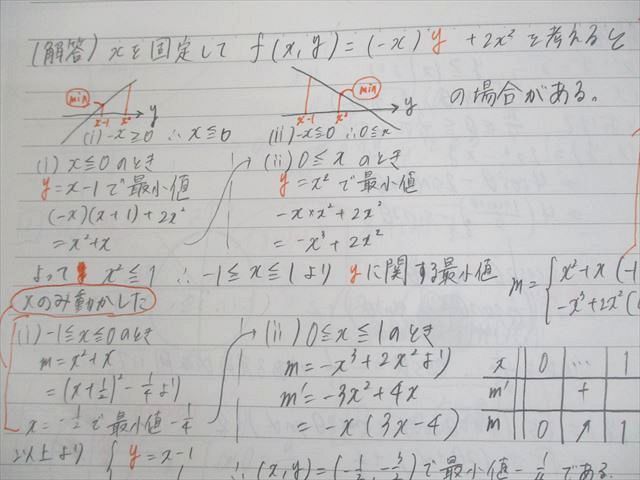 (解答) xを固定して f(x,y)=(-x)y+2x²を考えると
min y x-1 x²
min y x-1 x²
の場合がある。
(i) -x≧0 ∴x≦0
(ii) -x≦0 ∴0≦x
(i) x≦0のとき
y=x-1で最小値
(-x)(x+1)+2x²
=x²+x
(ii) 0≦xのとき
y=x²で最小値
-x×x²+2x²
=-x³+2x²
よって x²≦1 ∴-1≦x≦1より yに関する最小値 m={x²+x (-1
-x³+2x² (
xのみ動かした
(i) -1≦x≦0のとき
m=x²+x
=(x+1/2)²-1/4より
x=-1/2で最小値-1/4
(ii) 0≦x≦1のとき
m=-x³+2x²より
m'=-3x²+4x
=-x(3x-4)
x 0 … 1
m' +
m 0 ↗ 1
以上より { y=x-1
∴(x,y)=(-1/2,-3/2)で最小値-1/4である.